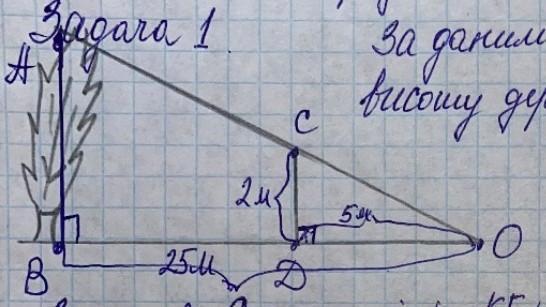 Задача 1.
За даним
висоту
A
C
2м
5м
B
25м
D
O